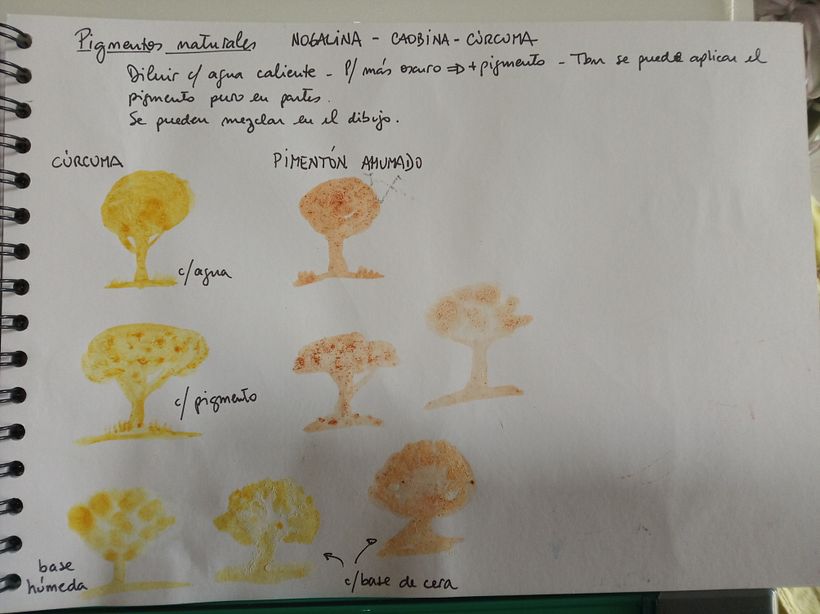 Pigmentos naturales NOGALINA - CAOBINA - CÚRCUMA
Diluir c/ agua caliente - P/ más oscuro ⇒ + pigmento - Tbn se puede aplicar el
pigmento puro en partes.
Se pueden mezclar en el dibujo.
CÚRCUMA PIMENTÓN AHUMADO
c/agua
c/ pigmento
base
húmeda
c/base de cera